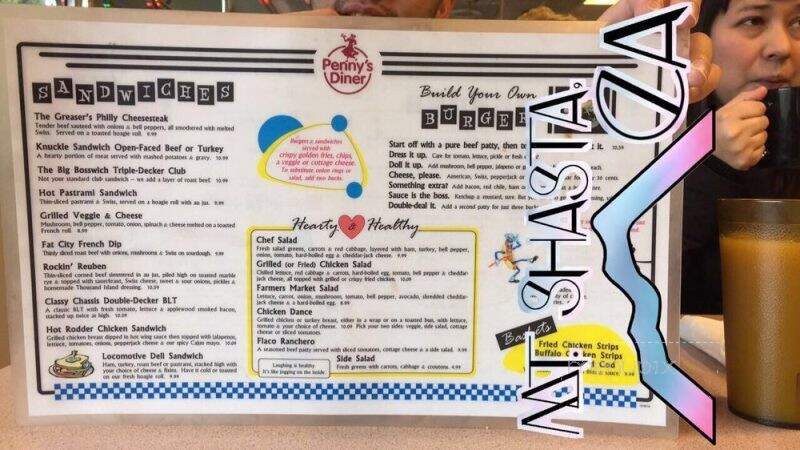 Penny's
Diner
SANDWICHES
The Greaser's Philly Cheesesteak
Tender beef sauteed with onions & bell peppers, all smothered with melted
Swiss. Served on a toasted hoagie roll. 9.99
Knuckle Sandwich Open-Faced Beef or Turkey
A hearty portion of meat served with mashed potatoes & gravy. 10.99
The Big Bosswich Triple-Decker Club
Not your standard club sandwich – we add a layer of roast beef. 10.99
Hot Pastrami Sandwich
Thin-sliced pastrami & Swiss, served on a hoagie roll with au jus. 9.99
Grilled Veggie & Cheese
Mushrooms, bell pepper, tomato, onion, spinach & cheese melted on a toasted
French roll. 8.99
Fat City French Dip
Thinly sliced roast beef with onions, mushrooms & Swiss on sourdough. 9.99
Rockin' Reuben
Thin-sliced corned beef simmered in au jus, piled high on toasted marble
rye & topped with sauerkraut, Swiss cheese, sweet & sour onions, pickles &
homemade Thousand Island dressing. 10.59
Classy Chassis Double-Decker BLT
A classic BLT with fresh tomato, lettuce & applewood smoked bacon,
stacked up twice as high. 10.99
Hot Rodder Chicken Sandwich
Grilled chicken breast dipped in hot wing sauce then topped with jalapenos,
lettuce, tomatoes, onions, pepperjack cheese & our spicy Cajun mayo. 10.09
Locomotive Deli Sandwich
Ham, turkey, roast beef or pastrami, stacked high with
your choice of cheese & fixins. Have it cold or toasted
on our fresh hoagie roll. 9.99
Burgers & sandwiches
served with
crispy golden fries, chips,
a veggie or cottage cheese.
To substitute onion rings or
salad, add two bucks.
Hearty & Healthy
Chef Salad
Fresh salad greens, carrots & red cabbage, layered with ham, turkey, bell pepper,
onion, tomato, hard-boiled egg & cheddar-jack cheese. 9.99
Grilled (or Fried) Chicken Salad
Chilled lettuce, red cabbage & carrots, hard-boiled egg, tomato, bell pepper & cheddar-
jack cheese, all topped with grilled or crispy fried chicken. 10.09
Farmers Market Salad
Lettuce, carrot, onion, mushroom, tomato, bell pepper, avocado, shredded cheddar-
jack cheese & a hard-boiled egg. 8.99
Chicken Dance
Grilled chicken or turkey breast, either in a wrap or on a toasted bun, with lettuce,
tomato & your choice of cheese. 10.09 Pick your two sides: veggie, side salad, cottage
cheese or sliced tomatoes.
Flaco Ranchero
A seasoned beef patty served with sliced tomatoes, cottage cheese & a side salad. 9.99
Laughing is healthy
It's like jogging on the inside
Side Salad
Fresh greens with carrots, cabbage & croutons. 4.99
Build Your Own
BURGER
Start off with a pure beef patty, then t it. 10.59
Dress it up. Care for tomato, lettuce, pickle or fresh
Doll it up. Add mushroom, bell pepper, jalapeno or se
Cheese, please. American, Swiss, pepperjack or for 50 cents.
Something extra? Add bacon, red chile, ham or
Sauce is the boss. Ketchup & mustard, sure. But
Double-deal it. Add a second patty for just three bucks
Baskets
Fried Chicken Strips
Buffalo Chicken Strips
Cod
MT. SHASTA,
CA